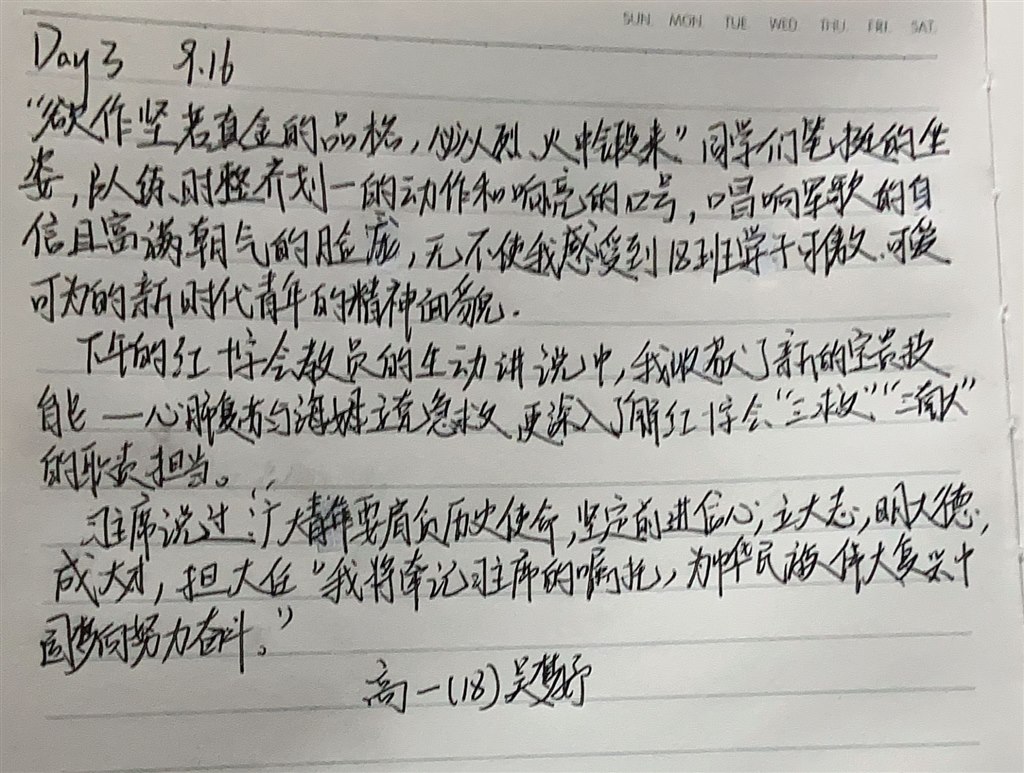 SUN MON TUE WED THU FRI SAT
Day 3 9.16
“欲作坚若真金的品格,必从烈火中锻来”同学们笔挺的坐
姿,队练时整齐划一的动作和响亮的口号,唱响军歌的自
信且富满朝气的脸庞,无不使我感受到18班学子可敬.可爱
可为的新时代青年的精神面貌.
下午的红十字会教员的生动讲说中,我收获了新的宝贵技
能——心肺复苏与海姆立克急救,更深入了解红十字会“三救”“三献”
的职责担当。
习主席说过:“广大青年要肩负历史使命,坚定前进信心,立大志,明大德,
成大才,担大任”我将牢记习主席的嘱托,为中华民族伟大复兴中
国梦而努力奋斗。”
高一(18)吴梦妤